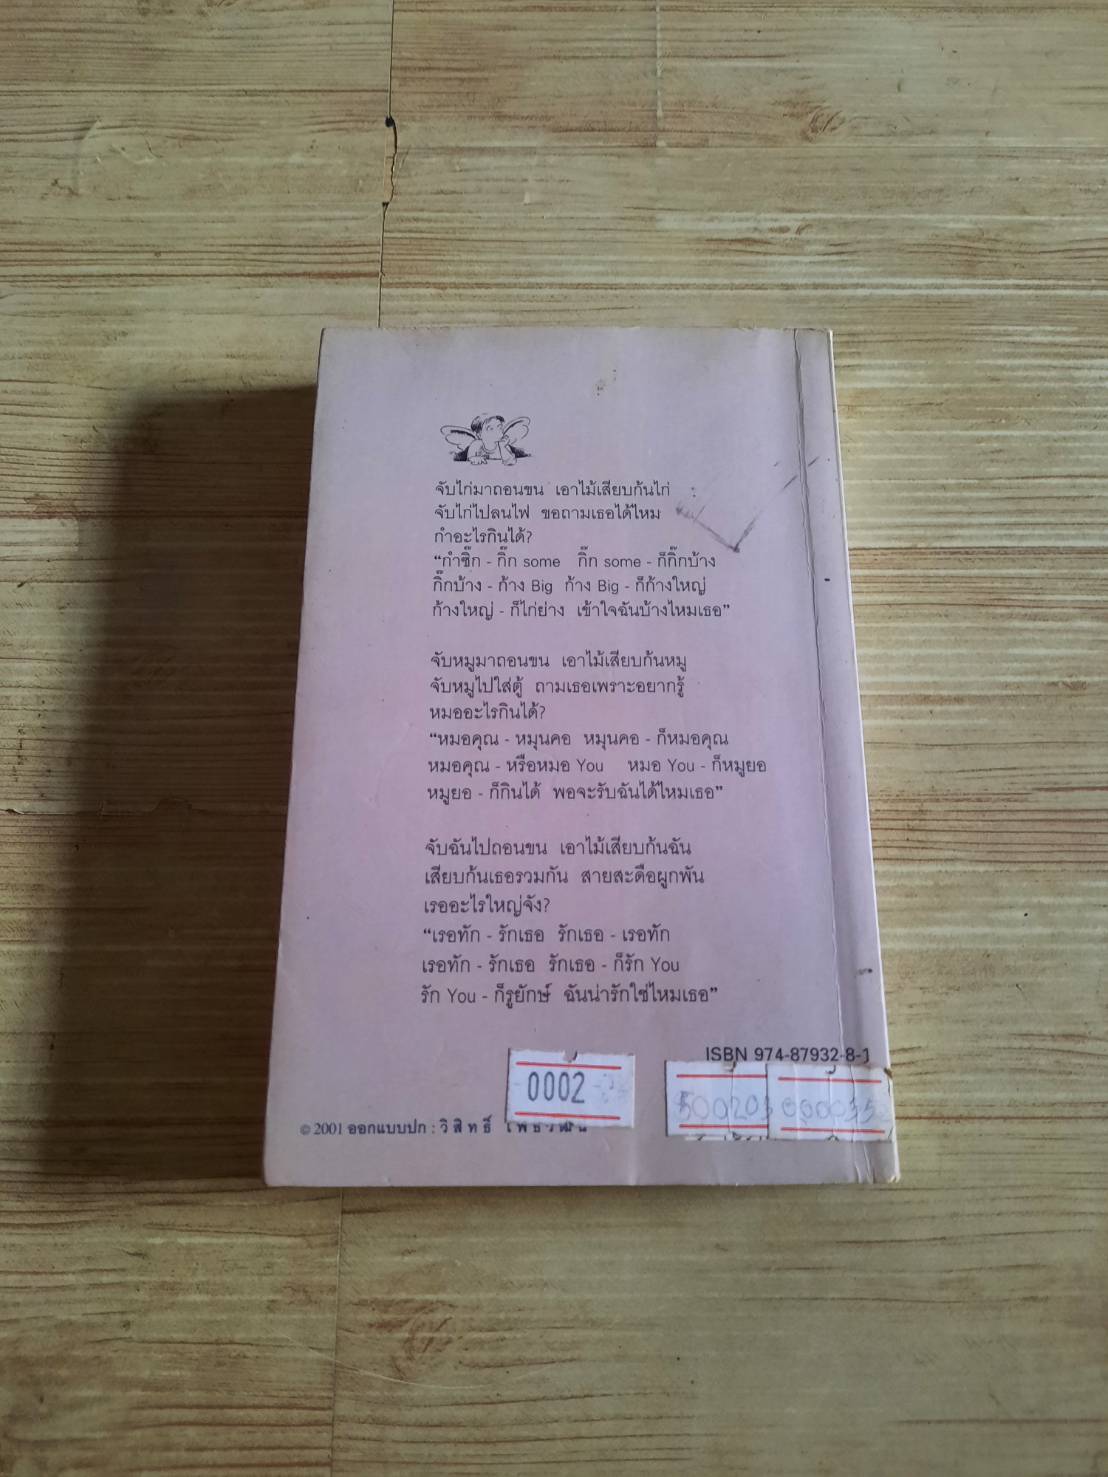 จับไก่มาถอนขน เอาไม้เสียบก้นไก่
จับไก่ไปลนไฟ ขอถามเธอได้ไหม
กำอะไรกินได้?
“กำซิ๊ก - กิ๊ก some กิ๊ก some - ก็กิ๊กบ้าง
กิ๊กบ้าง - ก้าง Big ก้าง Big - ก็ก้างใหญ่
ก้างใหญ่ - ก็ไก่ย่าง เข้าใจฉันบ้างไหมเธอ”
จับหมูมาถอนขน เอาไม้เสียบก้นหมู
จับหมูไปใส่ตู้ ถามเธอเพราะอยากรู้
หมออะไรกินได้?
“หมอคุณ - หมุนคอ หมุนคอ - ก็หมอคุณ
หมอคุณ - หรือหมอ You หมอ You - ก็หมูยอ
หมูยอ - ก็กินได้ พอจะรับฉันได้ไหมเธอ”
จับฉันไปถอนขน เอาไม้เสียบก้นฉัน
เสียบก้นเธอรวมกัน สายสะดือผูกพัน
เรออะไรใหญ่จัง?
“เรอทัก - รักเธอ รักเธอ - เรอทัก
เรอทัก - รักเธอ รักเธอ - ก็รัก You
รัก You - ก็รูยักษ์ ฉันน่ารักใช่ไหมเธอ”
ISBN 974-87932-8-1
0002
500203
000035
© 2001 ออกแบบปก : วิสิทธิ์